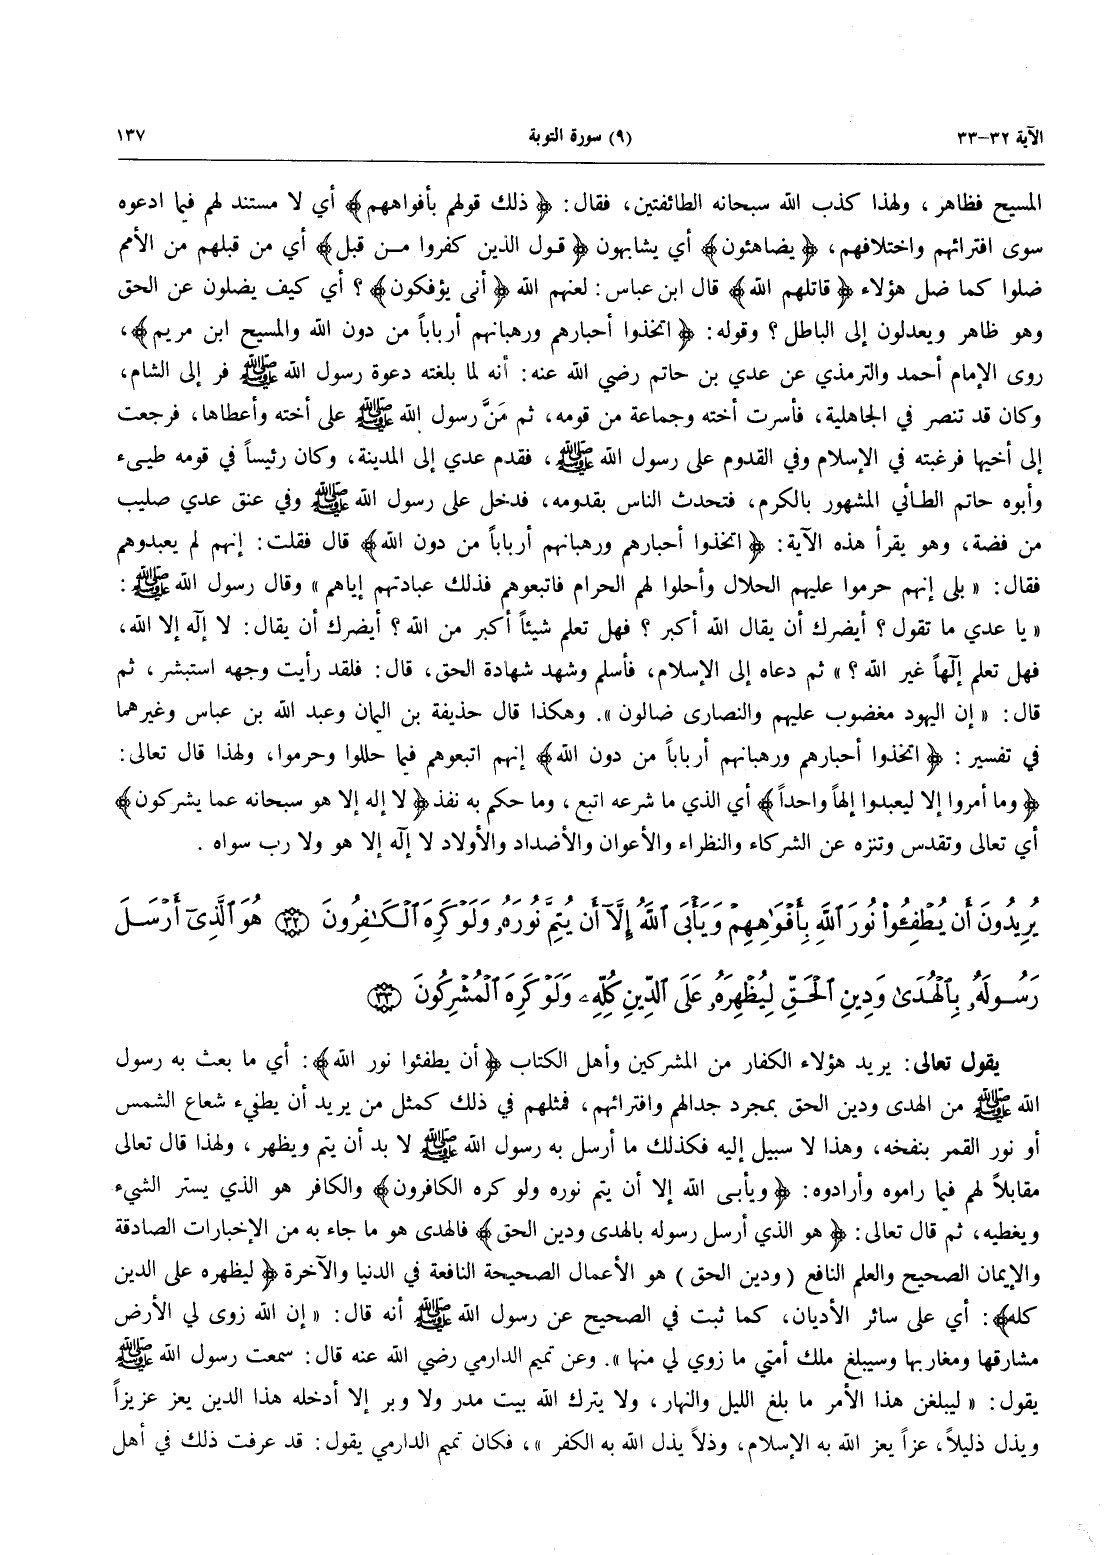 الآية ٣٢-٣٣ (٩) سورة التوبة ١٣٧
المسيح فظاهر ، ولهذا كذب الله سبحانه الطائفتين، فقال: ﴿ ذلك قولهم بأفواههم﴾ أي لا مستند لهم فيما ادعوه
سوى افترائهم واختلافهم، ﴿يضاهئون﴾ أي يشابهون ﴿قول الذين كفروا من قبل﴾ أي من قبلهم من الأمم
ضلوا كما ضل هؤلاء ﴿قاتلهم الله﴾ قال ابن عباس: لعنهم الله ﴿أنى يؤفكون﴾ ؟ أي كيف يضلون عن الحق
وهو ظاهر ويعدلون إلى الباطل ؟ وقوله: ﴿اتخذوا أحبارهم ورهبانهم أرباباً من دون الله والمسيح ابن مريم﴾،
روى الإمام أحمد والترمذي عن عدي بن حاتم رضي الله عنه: أنه لما بلغته دعوة رسول الله ﷺ فر إلى الشام،
وكان قد تنصر في الجاهلية، فأسرت أخته وجماعة من قومه، ثم مَنَّ رسول الله ﷺ على أخته وأعطاها، فرجعت
إلى أخيها فرغبته في الإسلام وفي القدوم على رسول الله ﷺ ، فقدم عدي إلى المدينة، وكان رئيساً في قومه طيىء
وأبوه حاتم الطائي المشهور بالكرم، فتحدث الناس بقدومه، فدخل على رسول الله ﷺ وفي عنق عدي صليب
من فضة، وهو يقرأ هذه الآية: ﴿اتخذوا أحبارهم ورهبانهم أرباباً من دون الله﴾ قال فقلت: إنهم لم يعبدوهم
فقال: « بلى إنهم حرموا عليهم الحلال وأحلوا لهم الحرام فاتبعوهم فذلك عبادتهم إياهم » وقال رسول الله ﷺ :
« يا عدي ما تقول ؟ أيضرك أن يقال الله أكبر ؟ فهل تعلم شيئاً أكبر من الله ؟ أيضرك أن يقال: لا إلٓه إلا الله،
فهل تعلم إلٓهاً غير الله ؟ » ثم دعاه إلى الإسلام، فأسلم وشهد شهادة الحق، قال: فلقد رأيت وجهه استبشر ، ثم
قال: « إن اليهود مغضوب عليهم والنصارى ضالون ». وهكذا قال حذيفة بن اليمان وعبد الله بن عباس وغيرهما
في تفسير : ﴿ اتخذوا أحبارهم ورهبانهم أرباباً من دون الله﴾ إنهم اتبعوهم فيما حللوا وحرموا، ولهذا قال تعالى:
﴿وما أمروا إلا ليعبدوا إلهاً واحداً﴾ أي الذي ما شرعه اتبع ، وما حكم به نفذ ﴿ لا إله إلا هو سبحانه عما يشركون﴾
أي تعالى وتقدس وتنزه عن الشركاء والنظراء والأعوان والأضداد والأولاد لا إلٓه إلا هو ولا رب سواه .
يُرِيدُونَ أَن يُطْفِـُٔوا۟ نُورَ ٱللَّهِ بِأَفْوَٰهِهِمْ وَيَأْبَى ٱللَّهُ إِلَّآ أَن يُتِمَّ نُورَهُۥ وَلَوْ كَرِهَ ٱلْكَـٰفِرُونَ ﴿٣٢﴾ هُوَ ٱلَّذِىٓ أَرْسَلَ
رَسُولَهُۥ بِٱلْهُدَىٰ وَدِينِ ٱلْحَقِّ لِيُظْهِرَهُۥ عَلَى ٱلدِّينِ كُلِّهِۦ وَلَوْ كَرِهَ ٱلْمُشْرِكُونَ ﴿٣٣﴾
يقول تعالى: يريد هؤلاء الكفار من المشركين وأهل الكتاب ﴿أن يطفئوا نور الله﴾: أي ما بعث به رسول
الله ﷺ من الهدى ودين الحق بمجرد جدالهم وافترائهم، فمثلهم في ذلك كمثل من يريد أن يطفيء شعاع الشمس
أو نور القمر بنفخه، وهذا لا سبيل إليه فكذلك ما أرسل به رسول الله ﷺ لا بد أن يتم ويظهر ، ولهذا قال تعالى
مقابلاً لهم فيما راموه وأرادوه: ﴿ويأبى الله إلا أن يتم نوره ولو كره الكافرون﴾ والكافر هو الذي يستر الشيء
ويغطيه، ثم قال تعالى: ﴿ هو الذي أرسل رسوله بالهدى ودين الحق﴾ فالهدى هو ما جاء به من الإخبارات الصادقة
والإيمان الصحيح والعلم النافع ( ودين الحق ) هو الأعمال الصحيحة النافعة في الدنيا والآخرة ﴿ ليظهره على الدين
كله﴾: أي على سائر الأديان، كما ثبت في الصحيح عن رسول الله ﷺ أنه قال: « إن الله زوى لي الأرض
مشارقها ومغاربها وسيبلغ ملك أمتي ما زوي لي منها ». وعن تميم الدارمي رضي الله عنه قال: سمعت رسول الله ﷺ
يقول: « ليبلغن هذا الأمر ما بلغ الليل والنهار، ولا يترك الله بيت مدر ولا وبر إلا أدخله هذا الدين يعز عزيزاً
ويذل ذليلاً، عزاً يعز الله به الإسلام، وذلاً يذل الله به الكفر »، فكان تميم الدارمي يقول: قد عرفت ذلك في أهل